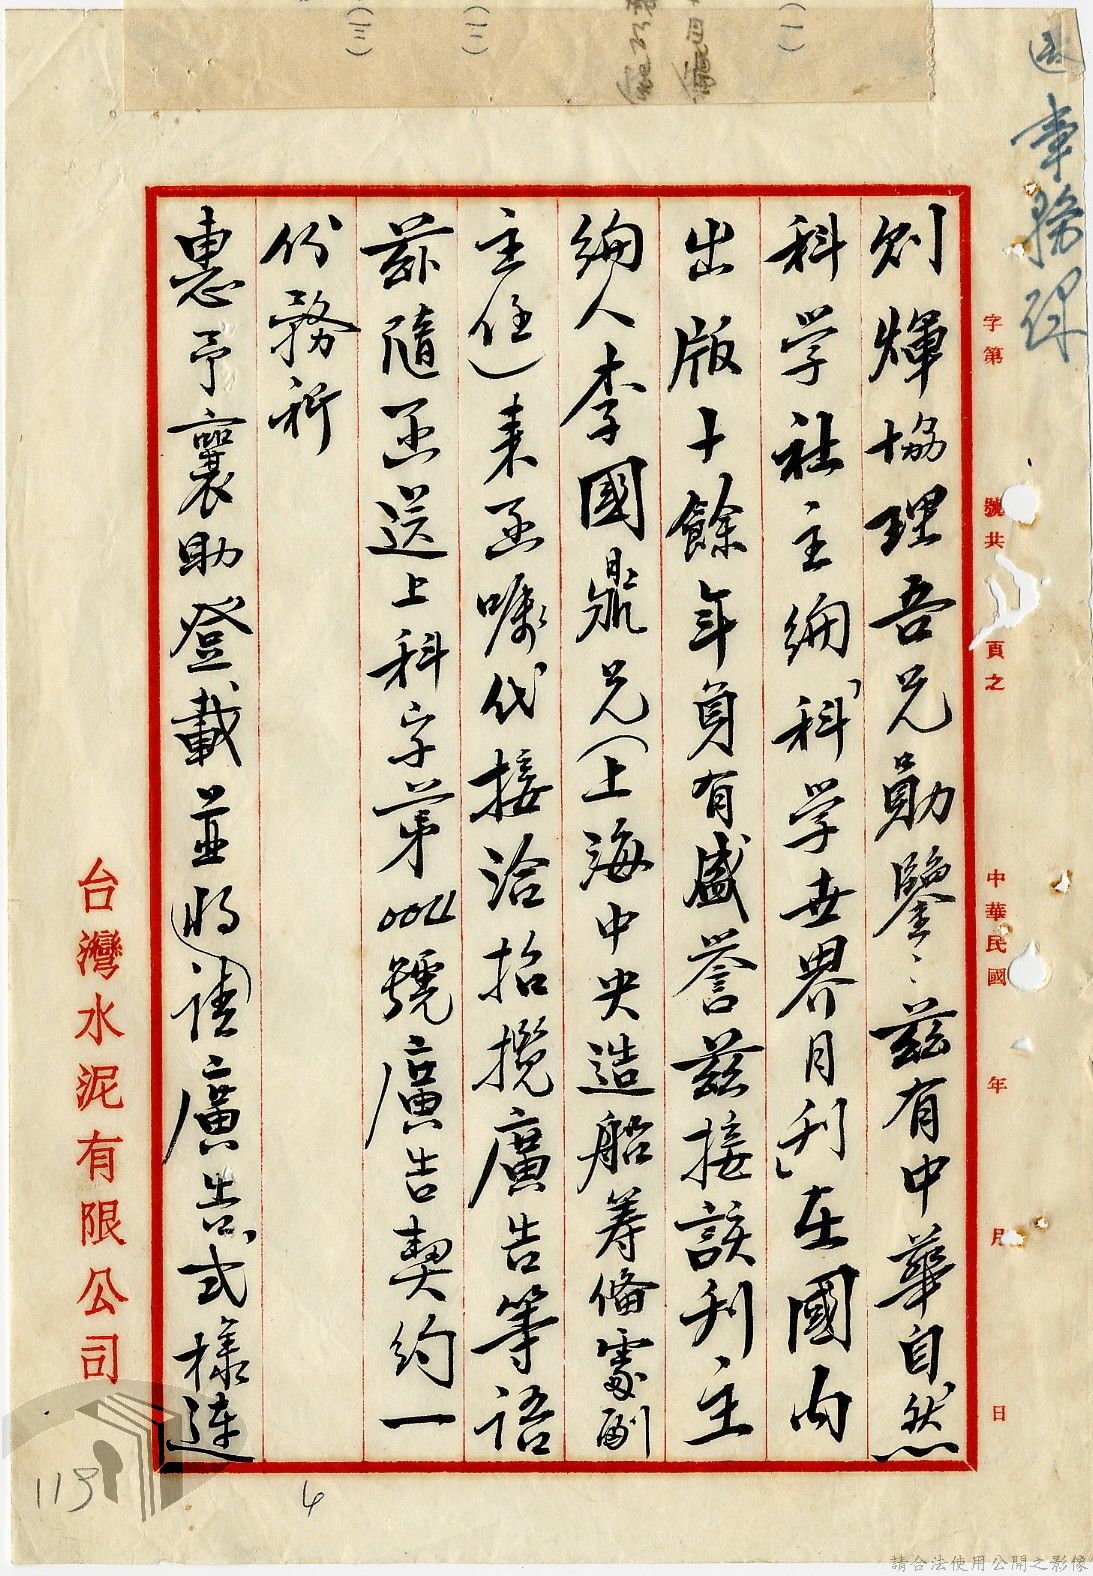 送事務課
字第　號共　頁之
中華民國　年　月　日
則煇協理吾兄勛鑒：茲有中華自然
科学社主編「科学世界月刊」在國內
出版十餘年負有盛譽茲接該刊主
編人李國鼎兄（上海中央造船籌備處副
主任）來函囑代接洽招攬廣告等語
茲隨函送上科字第0011號廣告契約一
份務祈
惠予襄助登載並將請廣告式樣連
台灣水泥有限公司
(一)
(二)
(三)
4
請合法使用公開之影像